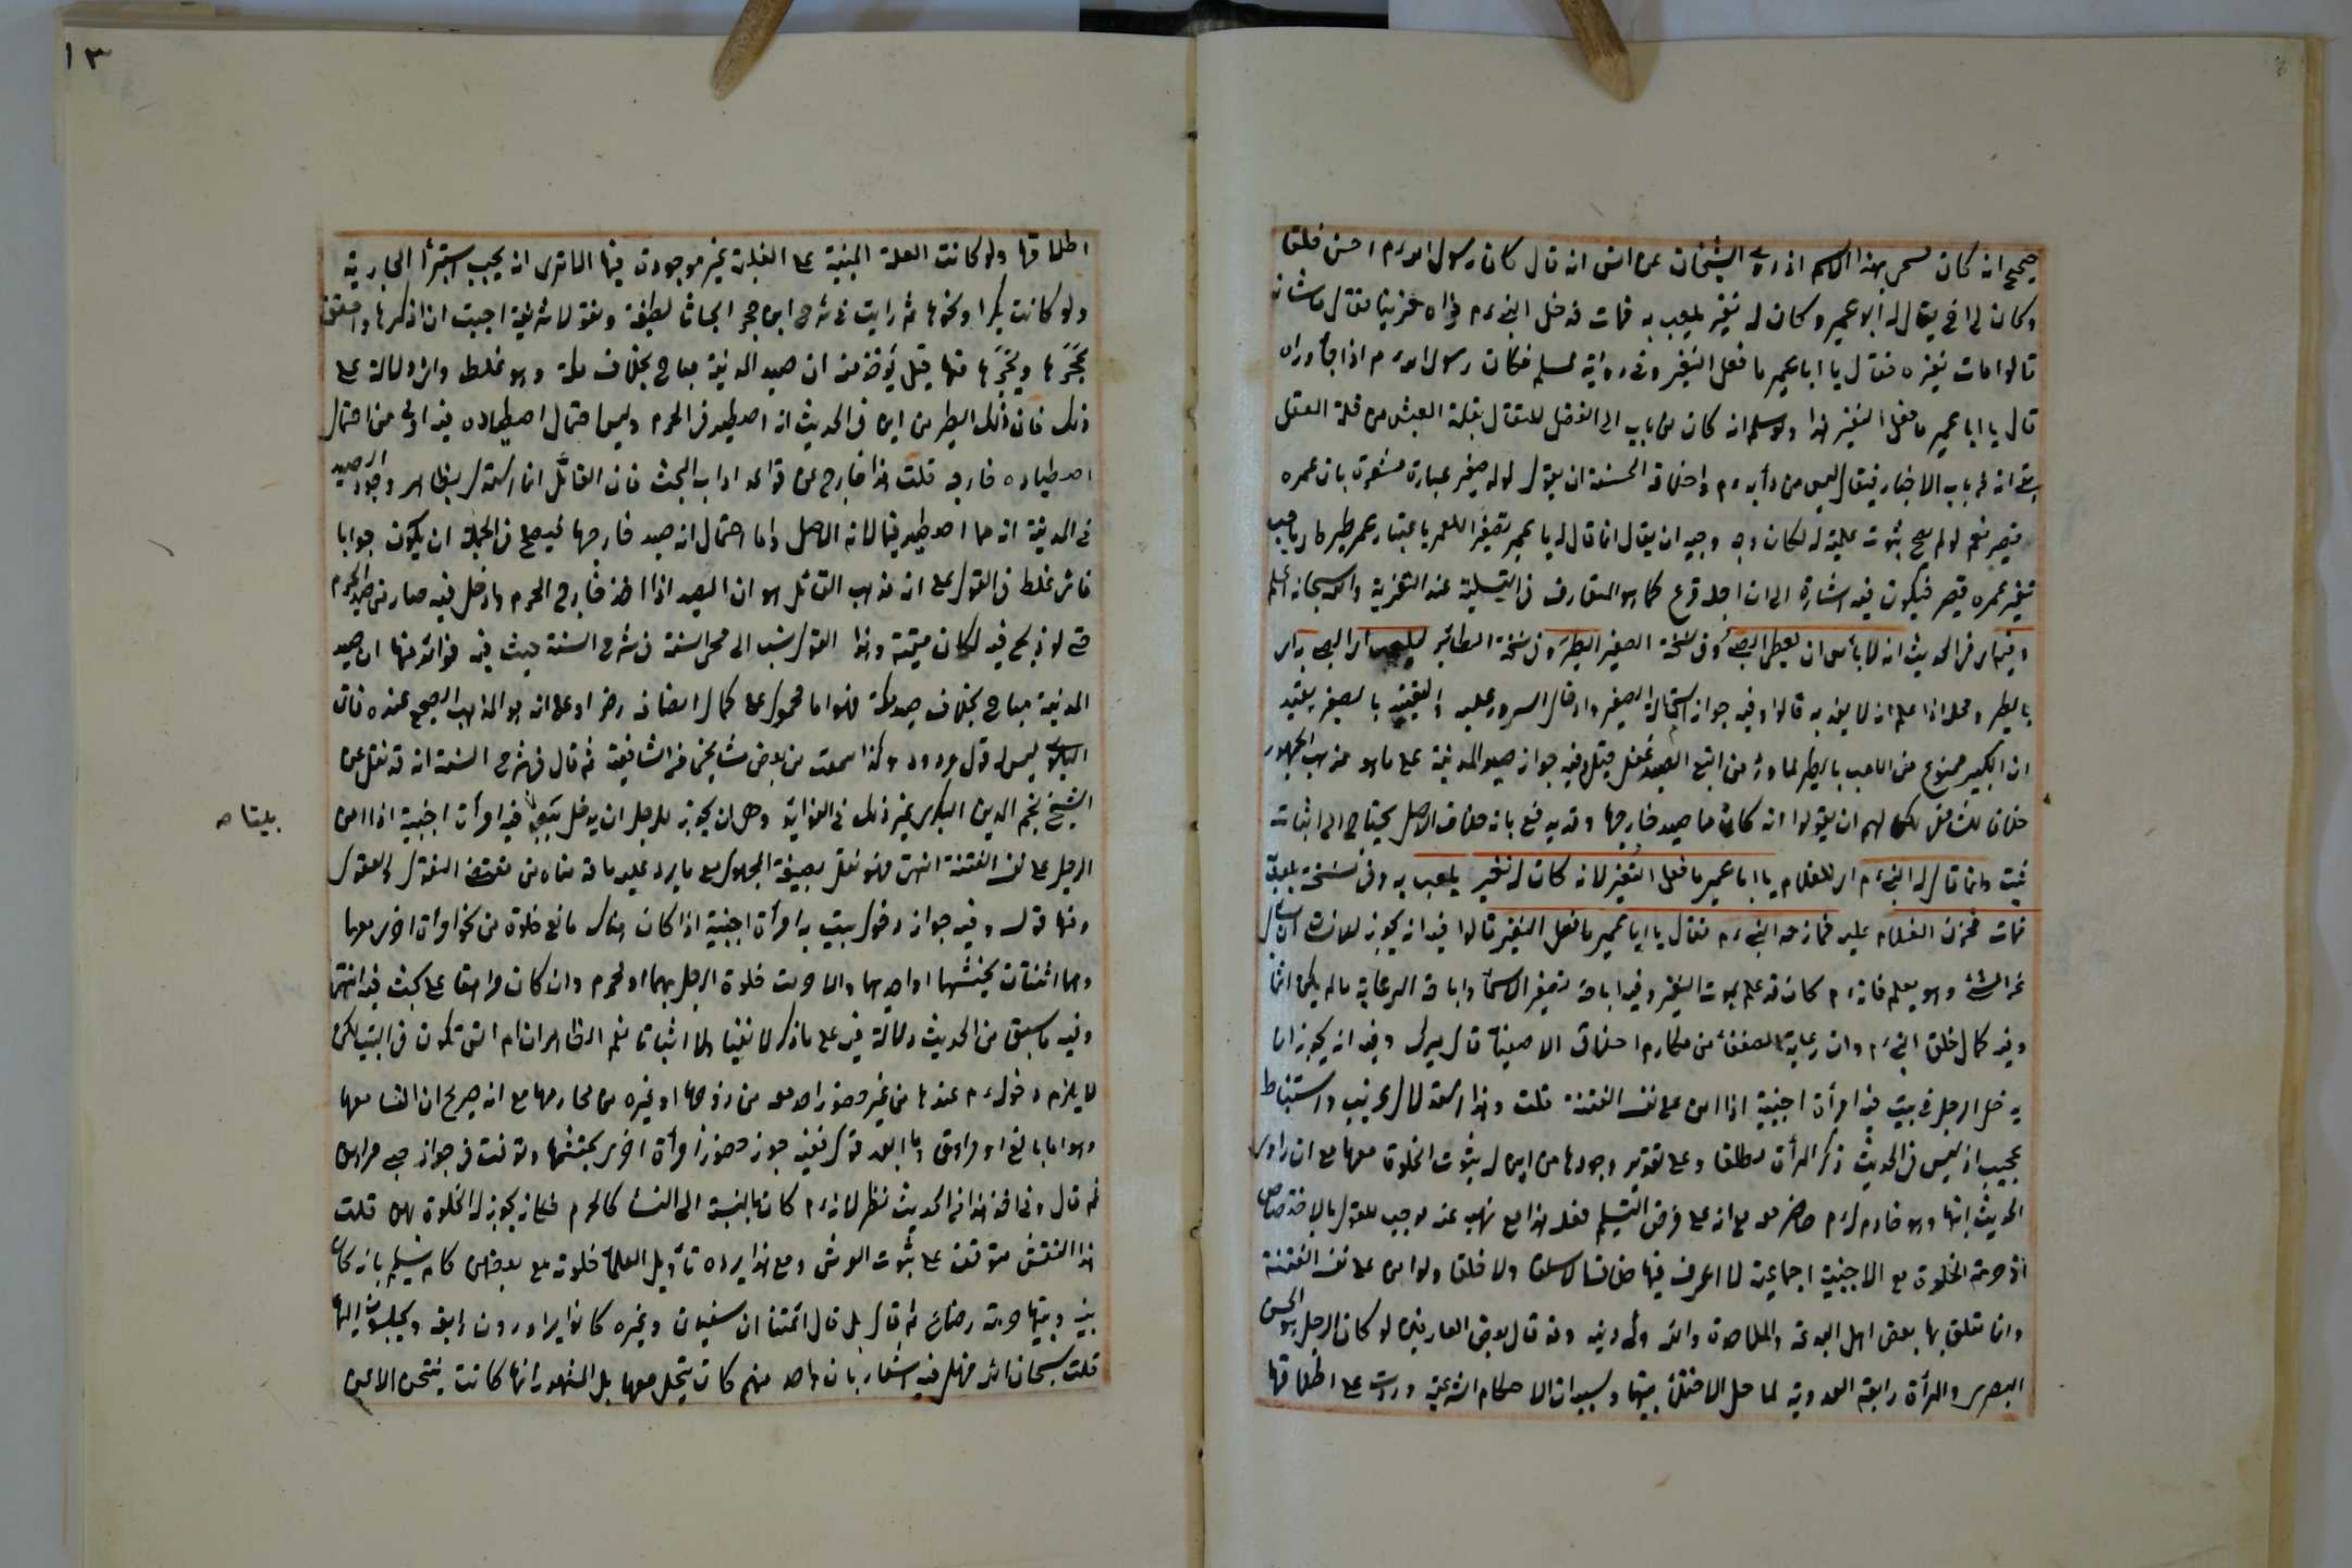 صحيح انه كان يسمى بهذا الاسم اذ روى الشيخان عن انس انه قال كان رسول الله م احسن خلقا
وكان لى اخ يقال له ابو عمير وكان له نغير يلعب به فمات فدخل النبي م فراه حزينا فقال ما شانه
قالوا مات نغيره فقال يا ابا عمير ما فعل النغير وفى رواية لمسلم فكان رسول الله م اذا جا وراه
قال يا ابا عمير ما فعل النغير هذا ولو سلم انه كان من باب ابى الفضل للتفال بقلة العيش من قلة العقل
انه من باب الاخبار فيقال ليس من دأبه م واخلاقه الحسنة ان يقول لولد صغير عبارة مشعرة بان عمره
قصير نعم لو لم يصح ثبوت علمية له لكان وجه وجيه ان يقال انما قال له يا عمير تصغيرا للعمر باعتبار عمر طير
نغير عمره قصير فيكون فيه اشارة الى ان اجله فرغ كما هو المتعارف فى التسلية عند التعزية والله سبحانه اعلم
وفيه اى فى الحديث انه لا بأس ان يعطى الصبى وفى نسخة الصغير الطير وفى نسخة الطائر ليلعب اى الصبى به اى
بالطير ومحله اذا علم انه لا يعذبه قالوا وفيه جواز استمالة الصغير وادخال السرور عليه والتقييد بالصغير يفيد
ان الكبير ممنوع من اللعب بالطير لما ورد من اتبع الصيد غفل قيل وفيه جواز صيد المدينة على ما هو مذهب الجمهور
خلافا للشافعى لكن لهم ان يقولوا انه كان مما صيد خارجها وقد يدفع بانه خلاف الاصل يحتاج الى اثبات
ثبت وانما قال له النبي م اى للغلام يا ابا عمير ما فعل النغير لانه كان له نغير يلعب به وفى نسخة فيلعب
فمات فحزن الغلام عليه فمازحه النبي م فقال يا ابا عمير ما فعل النغير قالوا فيه انه يجوز للانسان ان يسأل
عن الشئ وهو يعلمه فانه م كان قد علم بموت النغير وفيه اباحة تصغير الاسماء واباحة الدعابة ما لم يكن اثما
وفيه كمال خلق النبي م وان رعاية الضعفاء من مكارم اخلاق الاصفياء قال ميرك وفيه انه يجوز ان
يدخل الرجل فى بيت فيه امرأة اجنبية اذا امن على نفسه الفتنة قلت وهذا استدلال غريب واستنباط
عجيب اذ ليس فى الحديث ذكر المرأة مطلقا وعلى تقدير وجودها من اين له ثبوت الخلوة معها مع ان راوى
الحديث ابنها وهو خادم له م حاضر معه مع انه على فرض التسليم فعله هذا مع نهيه عنه موجب للقول بالاختصاص
اذ حرمة الخلوة مع الاجنبية اجماعية لا اعرف فيها خلافا لا سلفا ولا خلفا ولو امن على نفسه الفتنة
وانما تعلق بها بعض اهل البدعة والملاحدة وقد قال بعض العارفين لو كان الرجل هو الحسن
البصرى والمرأة رابعة العدوية لما حل الاختلاء بينهما وسببه ان الاحكام الشرعية وردت على اطلاقها
١٣
اطلاقها ولو كانت العلة المبنية على الغلبة غير موجودة فيها الا ترى انه يجب استبراء الجارية
ولو كانت بكرا ونحوها ثم رايت فى شرح ابن حجر ابحاثا لطيفة ونقولا شريفة احببت ان اذكرها واحقق
عجرها وبجرها منها قيل يؤخذ منه ان صيد المدينة مباح بخلاف مكة وهو غلط واى دلالة على
ذلك فان ذلك الطير من اين فى الحديث انه اصطيد فى الحرم وليس احتمال اصطياده فيه اولى من احتمال
اصطياده خارجه قلت هذا خارج عن قواعد اداب البحث فان القائل انما استدل بظاهر وجود الصيد
فى المدينة انه مما اصطيد فيها لانه الاصل واما احتمال انه صيد خارجها فيصلح فى الجملة ان يكون جوابا
فاين غلط فى القول على ان مذهب القائل هو ان الصيد اذا اخذ خارج الحرم وادخل فيه صار من صيد الحرم
حتى لو ذبح فيه لكان ميتة وهذا القول نسب الى محى السنة فى شرح السنة حيث فيه فوائد منها ان صيد
المدينة مباح بخلاف صيد مكة فهو اما محمول على كمال انصافه رضى او على انه هو المذهب الصحيح عنده فان
ليس له قول مردود كذا سمعت من بعض مشايخى من الشافعية ثم قال فى شرح السنة انه قد نقل عن
الشيخ نجم الدين الكبرى غير ذلك فى الفوائد وهى ان يجوز للرجل ان يدخل بيتا فيه امرأة اجنبية اذا امن
بيتا صح
الرجل على نفسه الفتنة انتهى فهو نقل بصيغة المجهول مع ما يرد عليه ما قدمناه من نقض النقول والعقول
ومنها قوله وفيه جواز دخول بيت به امرأة اجنبية اذا كان هناك مانع خلوة من نحو امرأة اخرى معها
وهما ثقتان يحتشمها او احديهما والا حرمت خلوة الرجل بهما او محرم وان كان مراهقا على بحث فيه انتهى
وفيه ما سبق من الحديث دلالة فيه على ما ذكر لا نفيا ولا اثباتا نعم الظاهر ان ام انس تكون فى البيت لكن
لا يلزم دخوله م عندها من غير حضور احد معه من زوجها او غيره من محارمها مع انه صريح ان انسا معها
وهو اما بالغ او مراهق وما ابعد قول فقيه جوز حضور امرأة اخرى يحتشمها وتوقف فى جواز صبى مراهق
ثم قال وفى اخذ هذا من الحديث نظر لانه م كان بالنسبة الى النساء كالمحرم فكان يجوز له الخلوة بهن قلت
هذا النقش متوقف على ثبوت العرش ومع هذا يرده تأويل العلماء خلوته مع بعضهن كام سليم بانه كان
بينه وبينها حرمة رضاع ثم قال بل قال ائمتنا ان سفيان وغيره كانوا يزورون رابعة ويجلسون اليها
قلت سبحان الله فهل فيه اشعار بان واحد منهم كان يختلى معها بل المشهور انها كانت